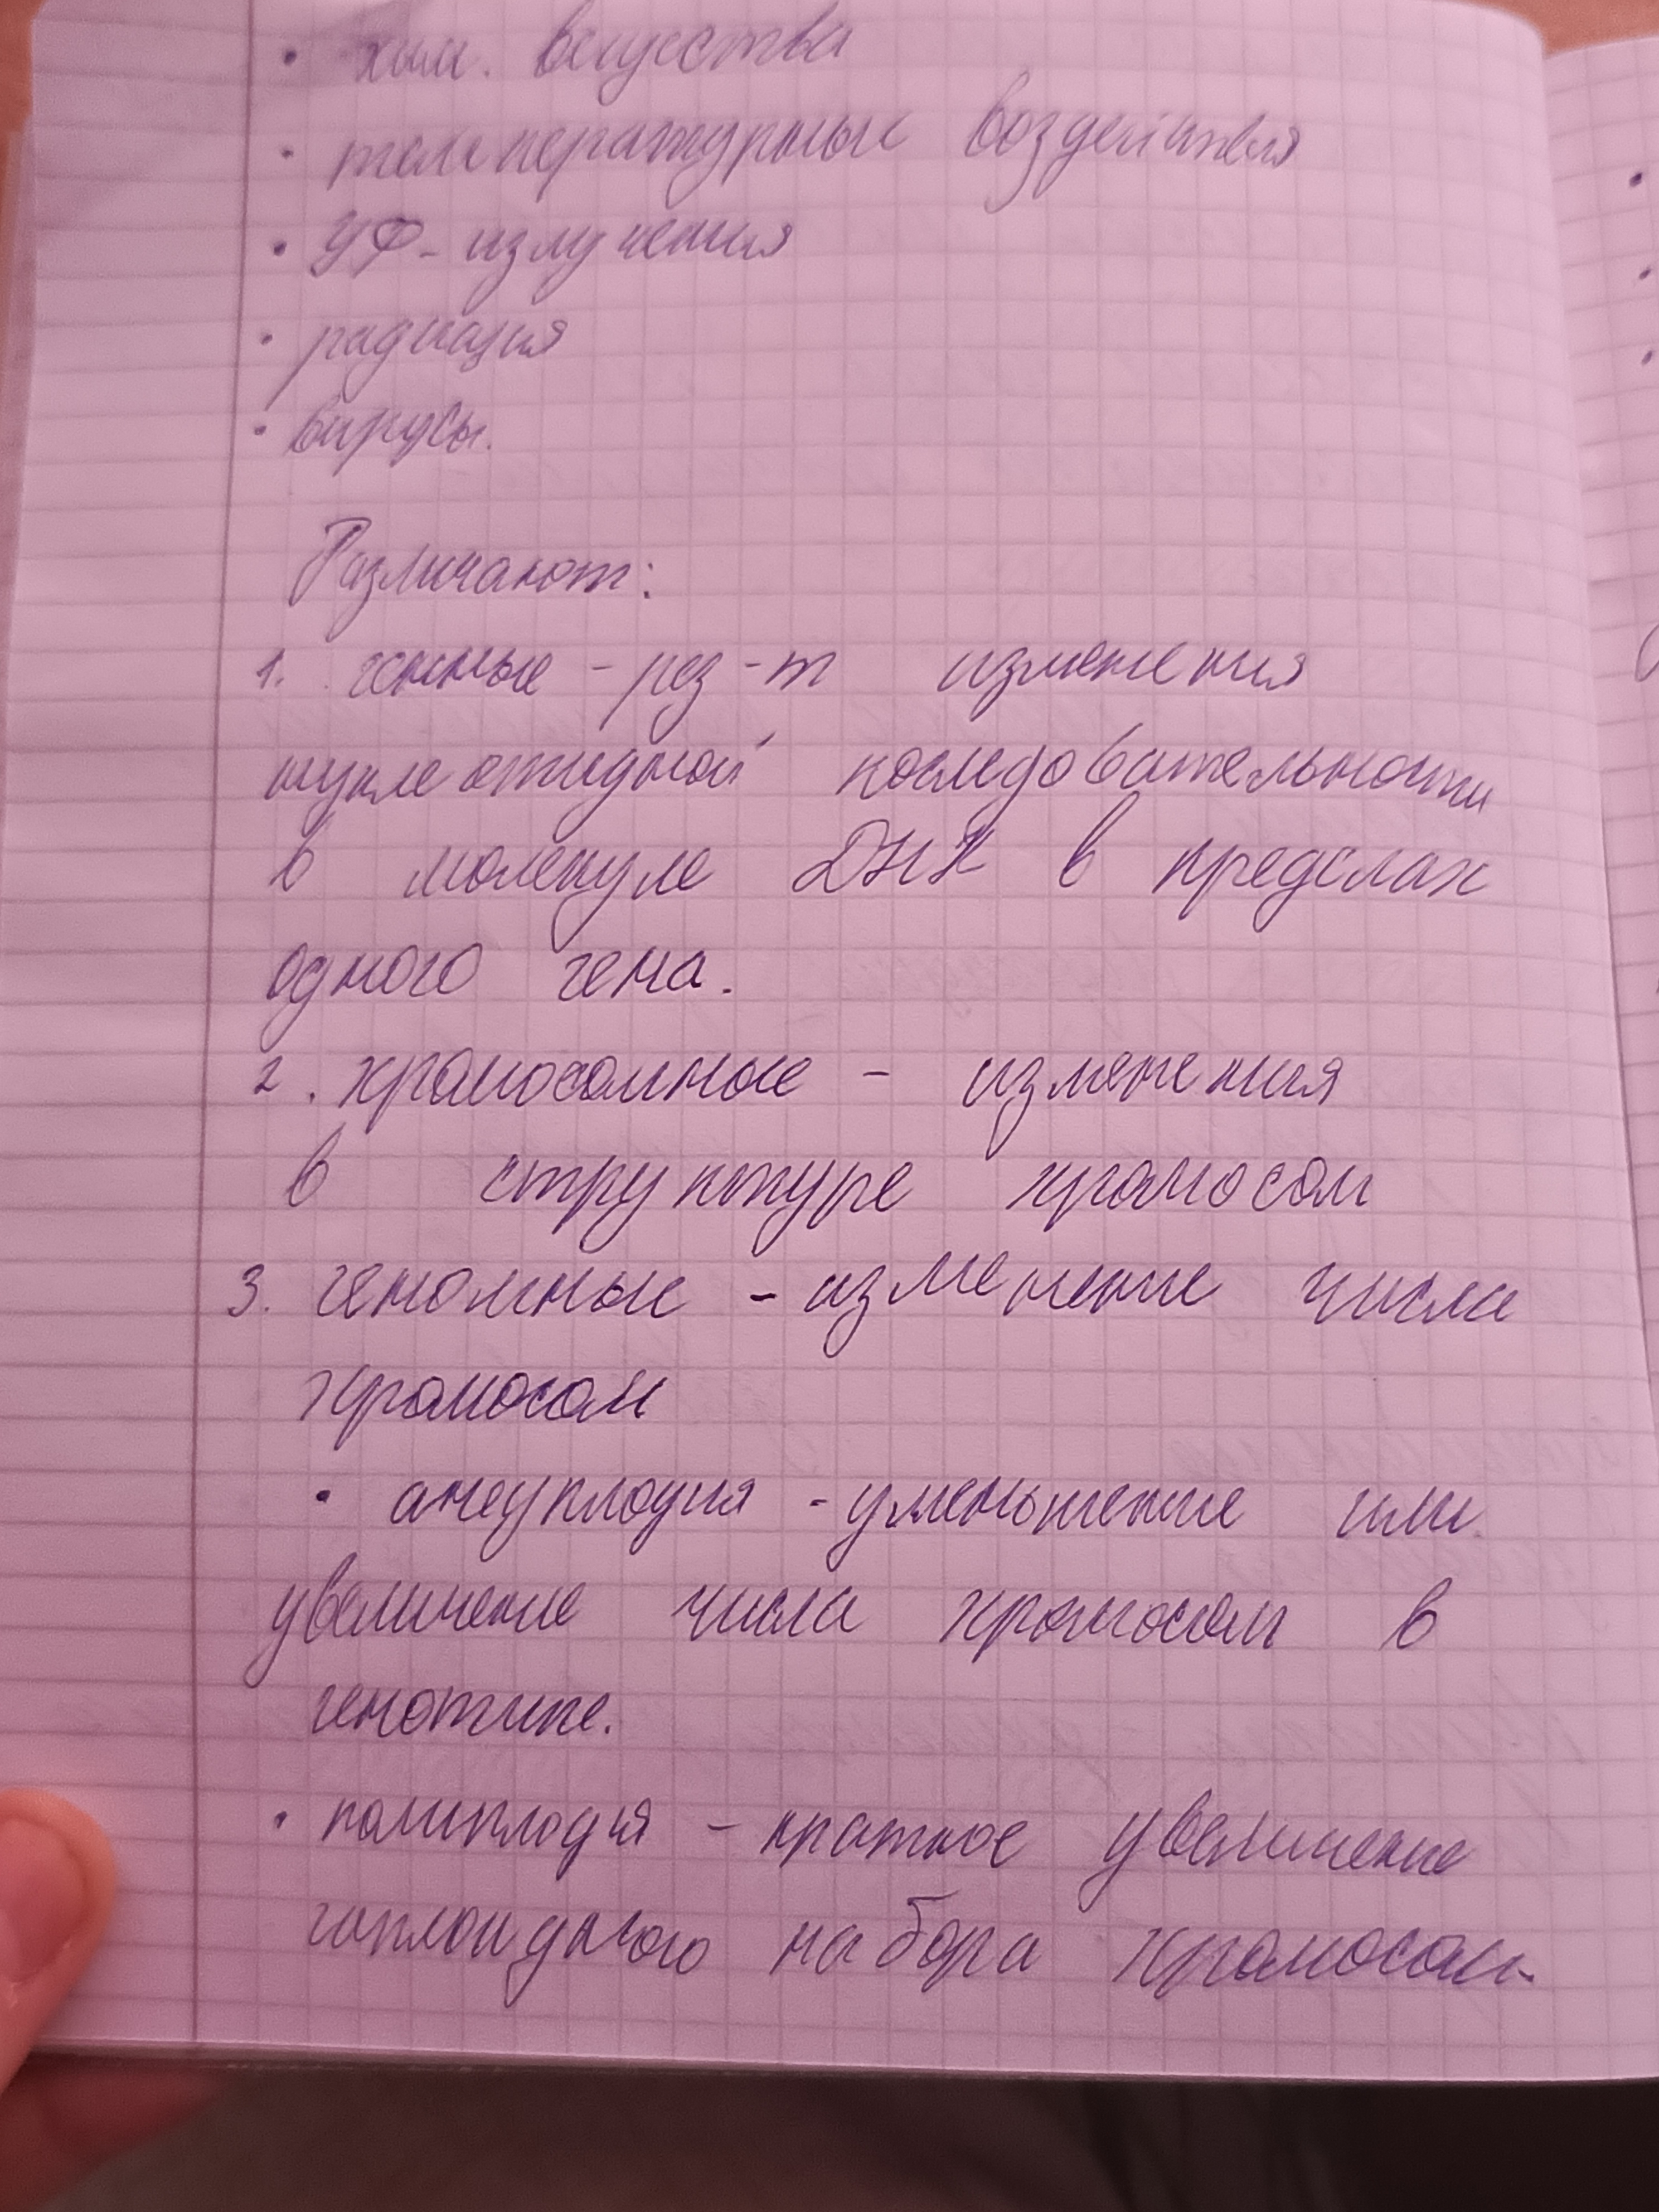 • хим. вещества
• температурные воздействия
• УФ-излучения
• радиация
• вирусы.
Различают:
1. генные - рез-т изменения
нуклеотидной последовательности
в молекуле ДНК в пределах
одного гена.
2. хромосомные - изменения
в структуре хромосом
3. геномные - изменение числа
хромосом
• анеуплодия - уменьшение или
увеличение числа хромосом в
генотипе.
• полиплодия - кратное увеличение
гаплоидного набора хромосом.